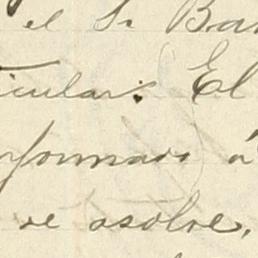 el Sr Bar
ticular. El
nformado á
se asolve,